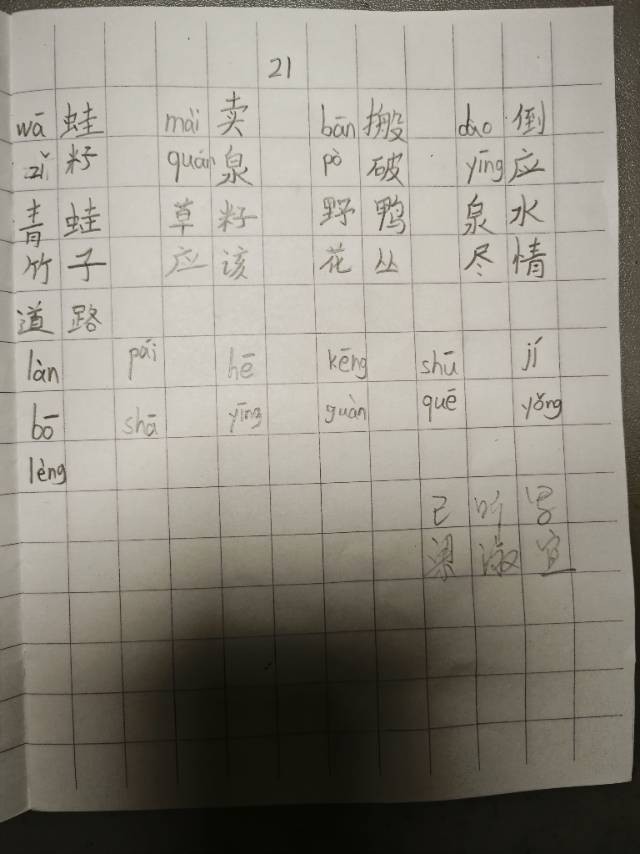 21
wā 蛙 mài 卖 bān 搬 dao 倒
zǐ 籽 quán 泉 pò 破 yīng 应
青蛙 草籽 野鸭 泉水
竹子 应该 花丛 尽情
道路
làn pái hē kēng shū jí
bō shā yīng guàn quē yǒng
lèng
已听写
梁淑宜